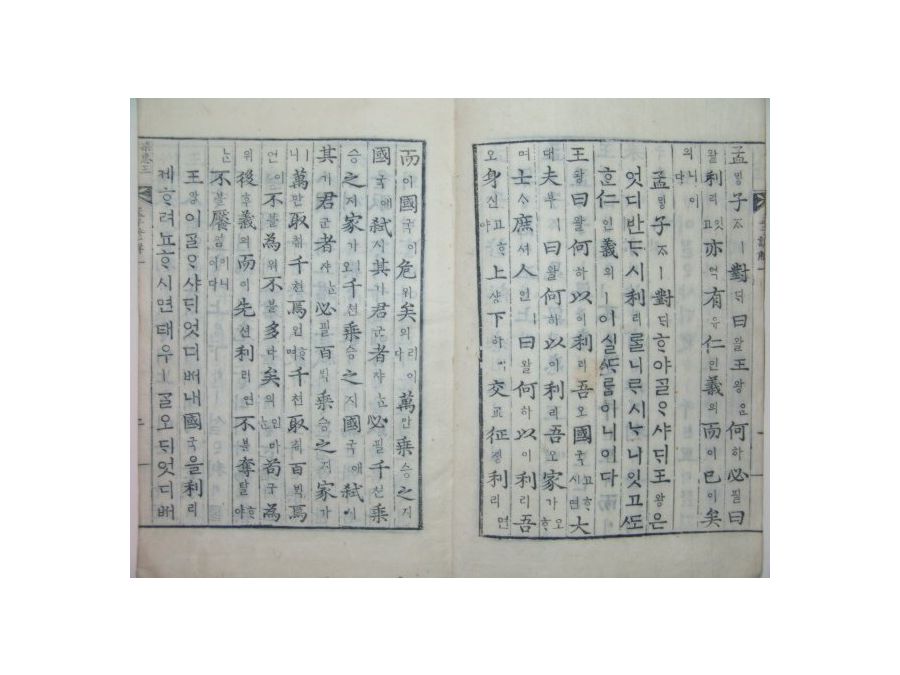 孟밍子ᄌᆞㅣ對ᄃᆡ曰왈王왕은何하必필曰
왈利리잇고亦역有유仁인義의而이已이矣
의니이다
孟밍子ᄌᆞㅣ對ᄃᆡᄒᆞ야ᄀᆞᆯᄋᆞ샤ᄃᆡ王왕은
엇디반ᄃᆞ시利리ᄅᆞᆯ니ᄅᆞ시ᄂᆞ니잇고ᄯᅩ
ᄒᆞᆫ仁인義의ㅣ이실ᄯᆞᄅᆞᆷ이니이다
王왕曰왈何하以이利리吾오國국고ᄒᆞ시면大
대夫부ㅣ曰왈何하以이利리吾오家가오ᄒᆞ
며士ᄉᆞ庶셔人인ㅣ曰왈何하以이利리吾
오身신고ᄒᆞ야上샹下하ㅣ交교征졍利리면
而이國국이危위矣의리이다萬만乘승之지
國국애弑시其기君군者쟈ᄂᆞᆫ必필千쳔乘
승之지家가ㅣ오千쳔乘승之지國국애弑시
其기君군者쟈ᄂᆞᆫ必필百ᄇᆡᆨ乘승之지家가
니萬만取츄千쳔焉언ᄒᆞ며千쳔取츄百ᄇᆡᆨ焉
언이不불為위不불多다矣의언마ᄂᆞᆫ苟구為
위後후義의而이先션利리면不불奪탈ᄒᆞ야ᄂᆞᆫ
不불饜염이니이다
王왕이ᄀᆞᆯᄋᆞ샤ᄃᆡ엇디ᄡᅥ내國국을利리
케ᄒᆞ려뇨ᄒᆞ시면태우ㅣᄀᆞᆯ오ᄃᆡ엇디ᄡᅥ